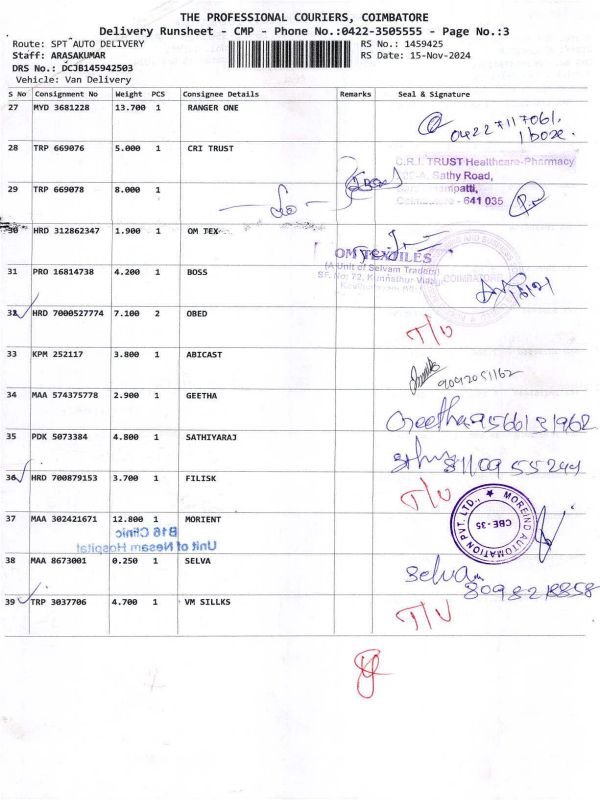 THE PROFESSIONAL COURIERS, COIMBATORE
Delivery Runsheet - CMP - Phone No.:0422-3505555 - Page No.:3
Route: SPT AUTO DELIVERY
RS No.: 1459425
Staff: ARASAKUMAR
RS Date: 15-Nov-2024
DRS No.: DCJB145942503
Vehicle: Van Delivery
S No Consignment No Weight PCS Consignee Details Remarks Seal & Signature
27 MYD 3681228 13.700 1 RANGER ONE
1 box.
28 TRP 669076 5.000 1 CRI TRUST
C.R.I. TRUST Healthcare-Pharmacy
Sathy Road,
29 TRP 669078 8.000 1
Coimbatore - 641 035
30 HRD 312862347 1.900 1 OM TEX
OM TEXTILES
(A Unit of Selvam Traders)
SF. No: 72, Kunnathur Village
31 PRO 16814738 4.200 1 BOSS
COIMBATORE
32 HRD 7000527774 7.100 2 OBED
T/U
33 KPM 252117 3.800 1 ABICAST
9092051162
34 MAA 574375778 2.900 1 GEETHA
Geetha 9566131962
35 PDK 5073384 4.800 1 SATHIYARAJ
81109 55244
36 HRD 700879153 3.700 1 FILISK
T/U
37 MAA 302421671 12.800 1 MORIENT
MOREIND AUTOMATION PVT. LTD.,
CBE - 35
B16 Clinic
Unit of Nesam Hospital
38 MAA 8673001 0.250 1 SELVA
Selva
8098218858
39 TRP 3037706 4.700 1 VM SILLKS
T/U